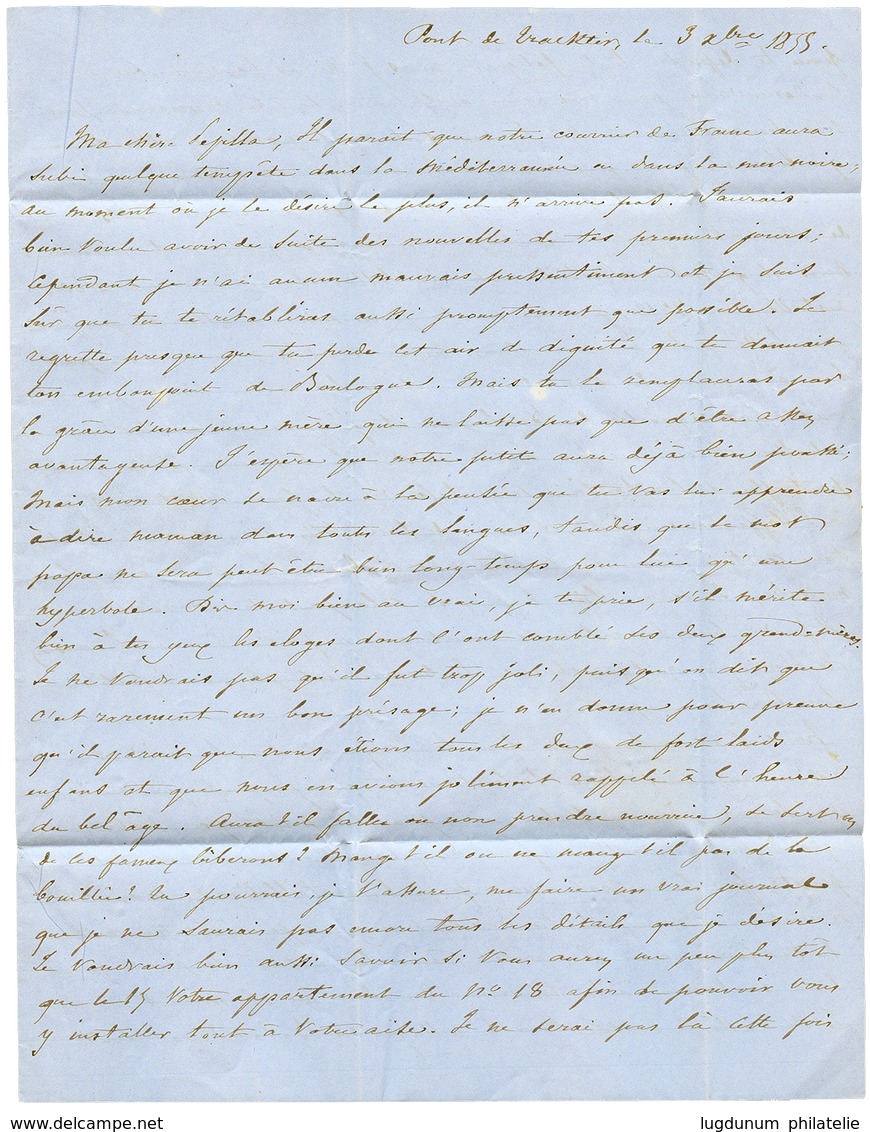 Pont de Traktir, le 3 Xbre 1855.
Ma chère Pepilla, Il parait que notre courrier de France aura
subi quelque tempête dans la Méditerrannée ou dans la mer noire;
au moment où je le désire le plus, il n'arrive pas. J'aurais
bien voulu avoir de suite des nouvelles de tes premiers jours;
cependant je n'ai aucun mauvais pressentiment et je suis
sûr que tu te rétabliras aussi promptement que possible. Je
regrette presque que tu perde cet air de dignité que te donnait
ton embonpoint de Boulogne. Mais tu le remplaceras par
la grâce d'une jeune mère qui ne laisse pas que d'être assez
avantageuse. J'espère que notre petit aura déjà bien poussé;
Mais mon cœur se navre à la pensée que tu vas lui apprendre
à dire maman dans toutes les langues, tandis que le mot
papa ne sera peut-être bien long-temps pour lui qu'une
hyperbole. Dis moi bien au vrai, je te prie, s'il mérite
bien à tes yeux les eloges dont l'ont comblé ses deux grand-mères.
Je ne voudrais pas qu'il fut trop joli, puisqu'on dit que
c'est rarement un bon présage; je n'en donne pour preuve
qu'il parait que nous étions tous les deux de fort laids
enfans et que nous en avions joliment rappelé à l'heure
du bel âge. Aura-t'il fallu ou non prendre nourrice, se servir
de ces fameux biberons? Mange t'il ou ne mange t'il pas de la
bouillie? Tu pourrais, je t'assure, me faire un vrai journal
que je ne saurais pas encore tous les détails que je désire.
Je voudrais bien aussi savoir si vous aurez un peu plus tôt
que le 15 votre appartement du No. 18 afin de pouvoir vous
y installer tout à votre aise. Je ne serai pas là cette fois
www.delcampe.net
lugdunum philatelie